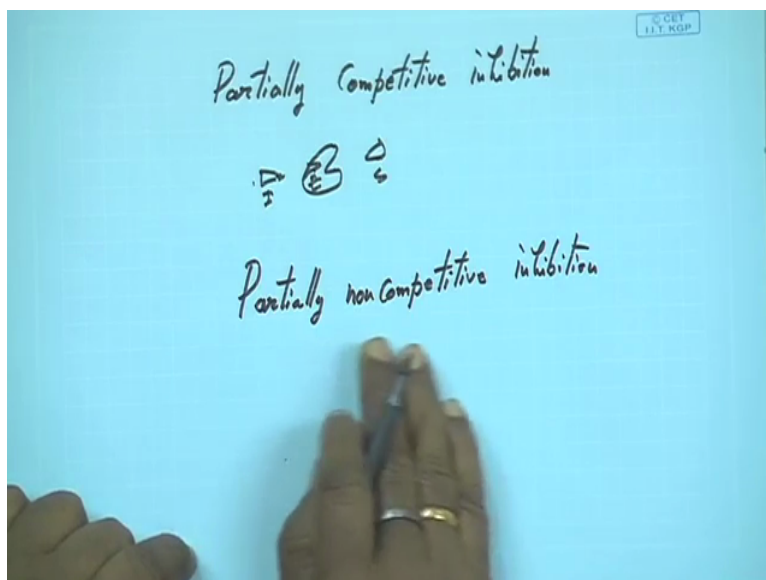 © CET
I.I.T. KGP
Partially Competitive inhibition
I E S
Partially noncompetitive inhibition